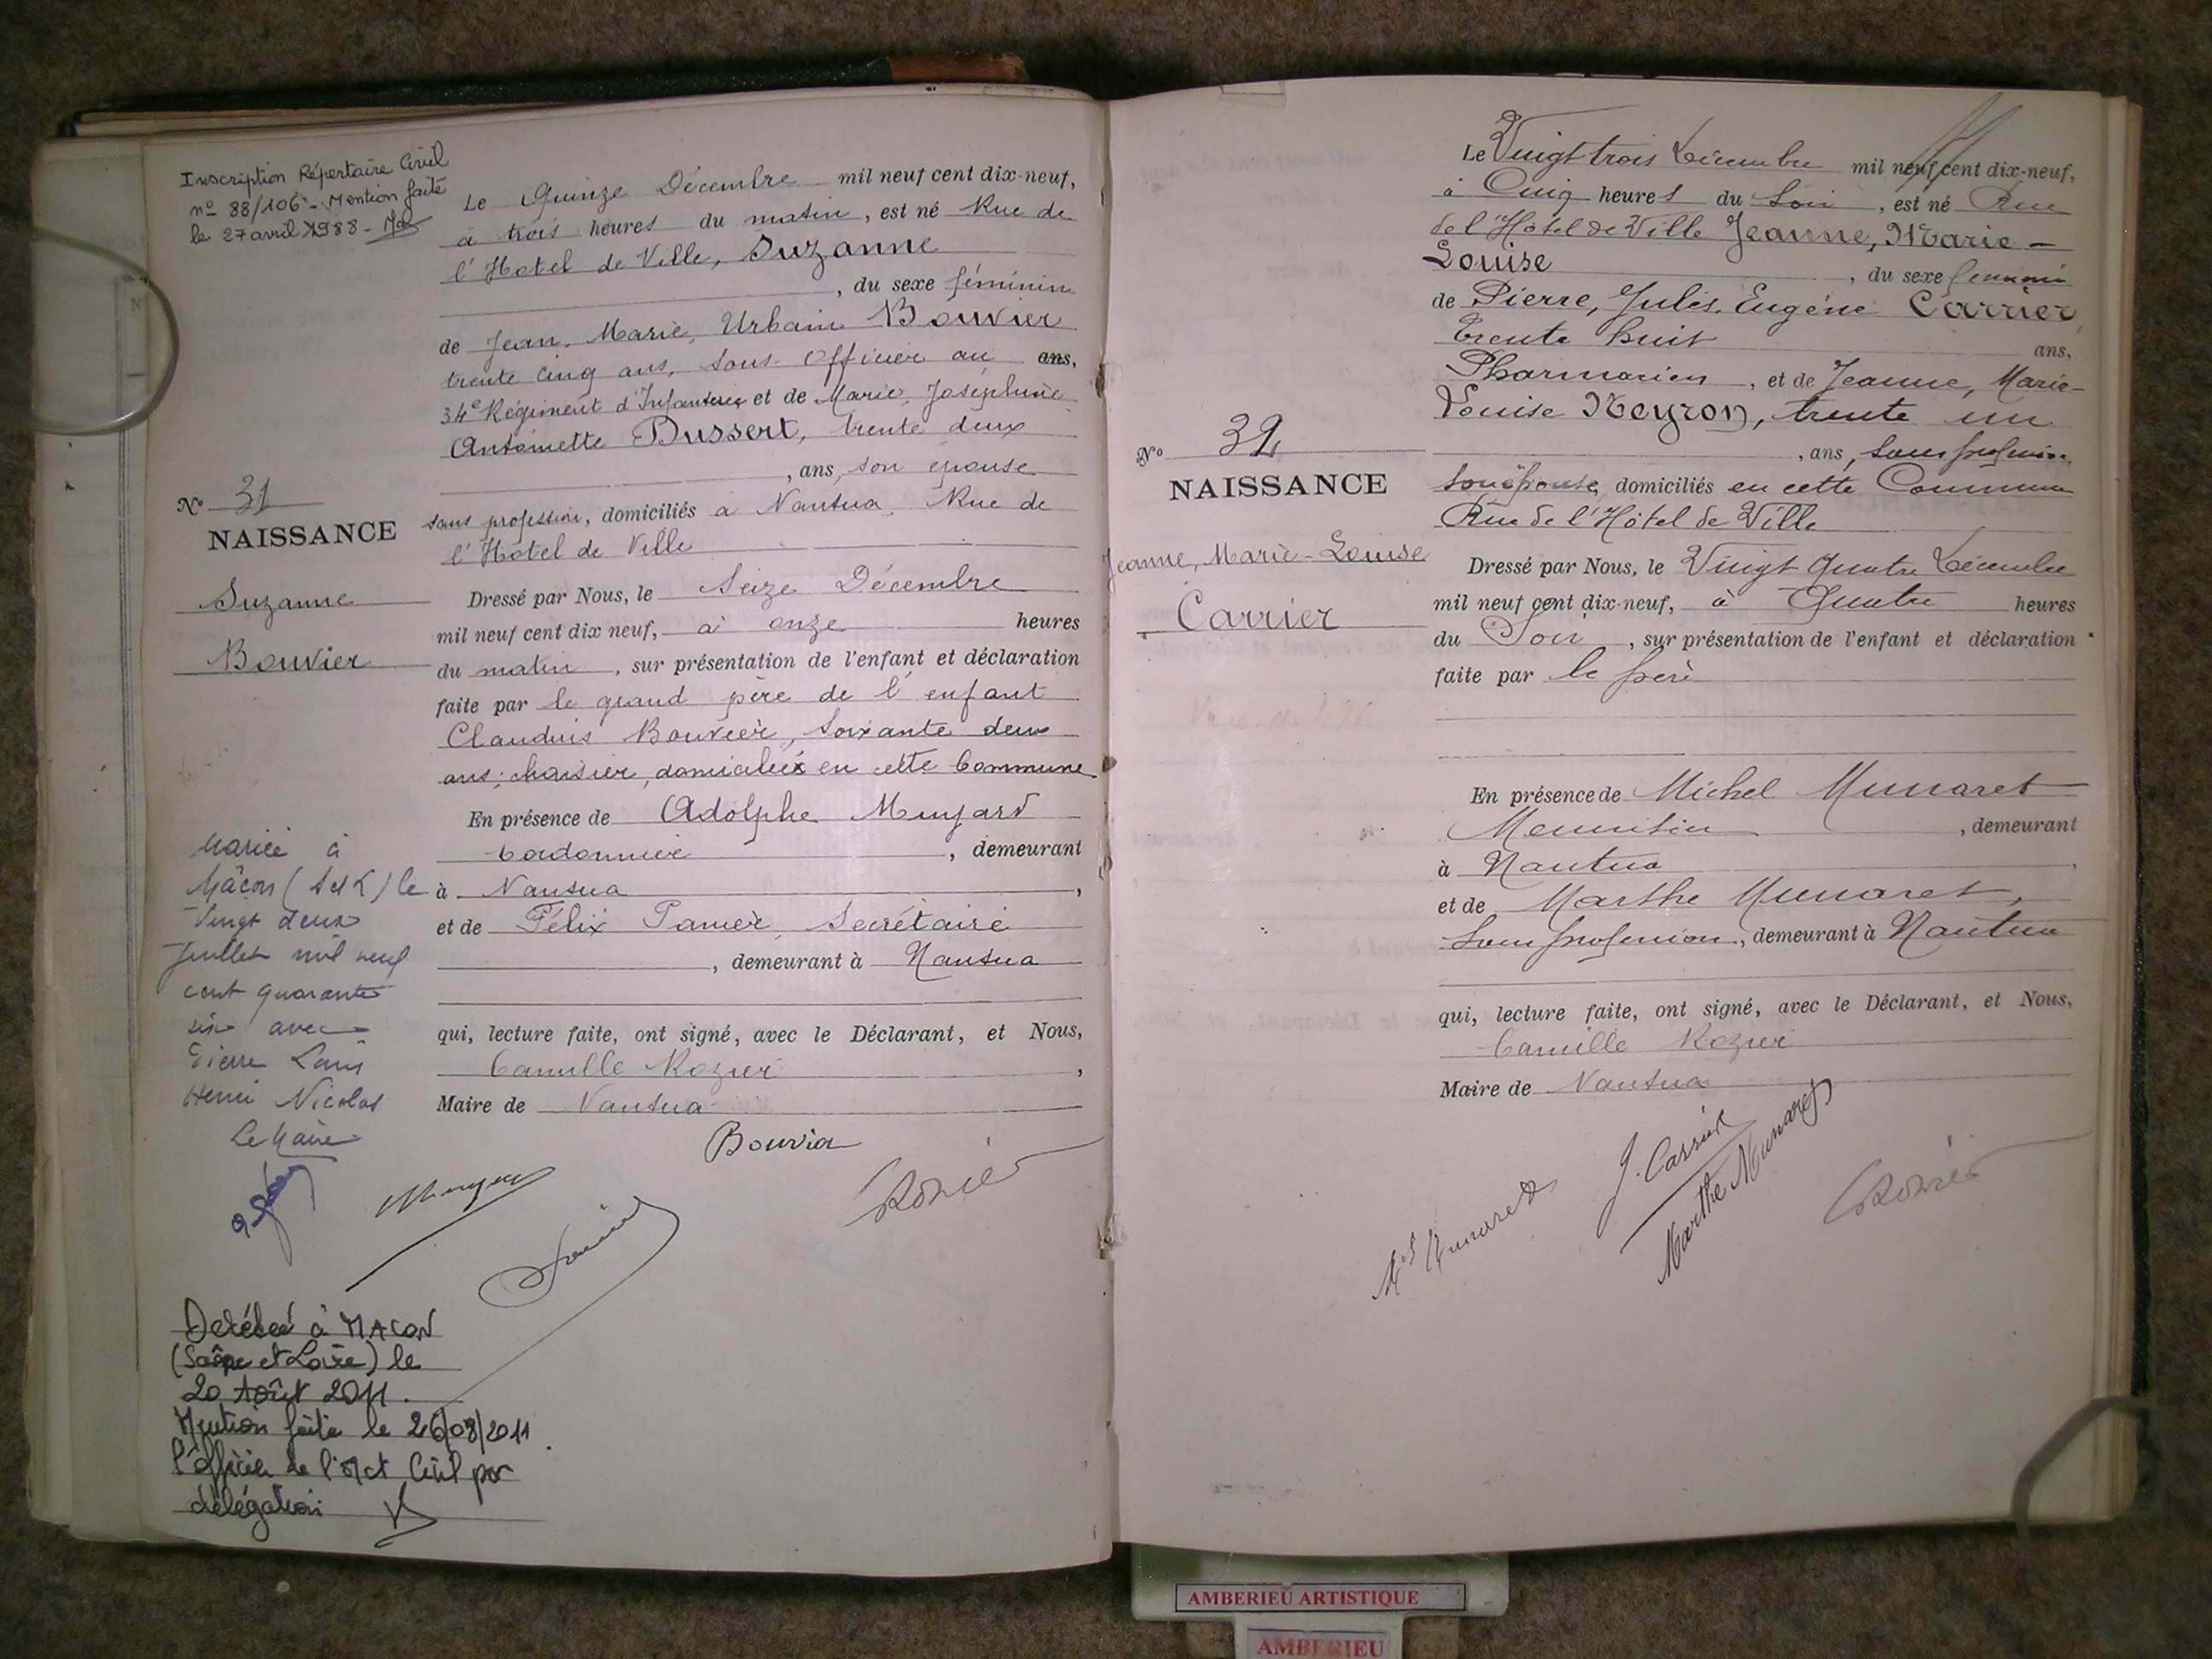 Inscription Répertoire Civil
nº 88/106 - Mention faite
le 27 avril 1988 -
Le Quinze Décembre mil neuf cent dix-neuf,
à trois heures du matin, est né Rue de
l'Hotel de Ville, Suzanne
, du sexe féminin
de Jean, Marie, Urbain Bouvier
trente cinq ans, sous-officier au ans,
34e Régiment d'Infanterie et de Marie, Joséphine
Antoinette Bussert, trente deux
, ans, son épouse
sans profession, domiciliés a Nantua, Rue de
l'Hôtel de Ville
Nº 31
NAISSANCE
Suzanne
Bouvier
Dressé par Nous, le Seize Décembre
mil neuf cent dix neuf, à onze heures
du matin, sur présentation de l'enfant et déclaration
faite par le grand père de l'enfant
Claudius Bouvier, soixante deux
ans, chaisier, domicilié en cette Commune
En présence de Adolphe
Cordonnier, demeurant
à Nantua,
et de Félix Panier, Secrétaire
, demeurant à Nantua
qui, lecture faite, ont signé, avec le Déclarant, et Nous,
Camille Rozier,
Maire de Nantua
Mariée à
Mâcon (S et L) le
Vingt deux
Juillet mil neuf
cent quarante
six avec
Pierre Louis
Henri Nicolas
Le Maire
Bouvier
CRozier
Décédée à MACON
(Saône et Loire) le
20 Août 2011.
Mention faite le 26/08/2011
l'officier de l'Etat Civil par
délégation
Le Vingt trois Décembre mil neuf cent dix-neuf,
à Cinq heures du Soir, est né Rue
de l'Hôtel de Ville Jeanne, Marie-
Louise, du sexe féminin
de Pierre, Jules, Eugéne Carrier,
trente huit ans,
Pharmacien, et de Jeanne, Marie-
Louise Neyron, trente un
, ans, sans profession,
son épouse, domiciliés en cette Commune
Rue de l'Hôtel de Ville
Nº 32
NAISSANCE
Jeanne, Marie-Louise
Carrier
Dressé par Nous, le Vingt Quatre Décembre
mil neuf cent dix-neuf, à Quatre heures
du Soir, sur présentation de l'enfant et déclaration
faite par le père
En présence de Michel Munaret
Menuisier, demeurant
à Nantua
et de Marthe Munaret,
Sans profession, demeurant à Nantua
qui, lecture faite, ont signé, avec le Déclarant, et Nous,
Camille Rozier
Maire de Nantua
Munaret
J. Carrier
Marthe Munaret
CRozier
AMBERIEU ARTISTIQUE
AMBERIEU